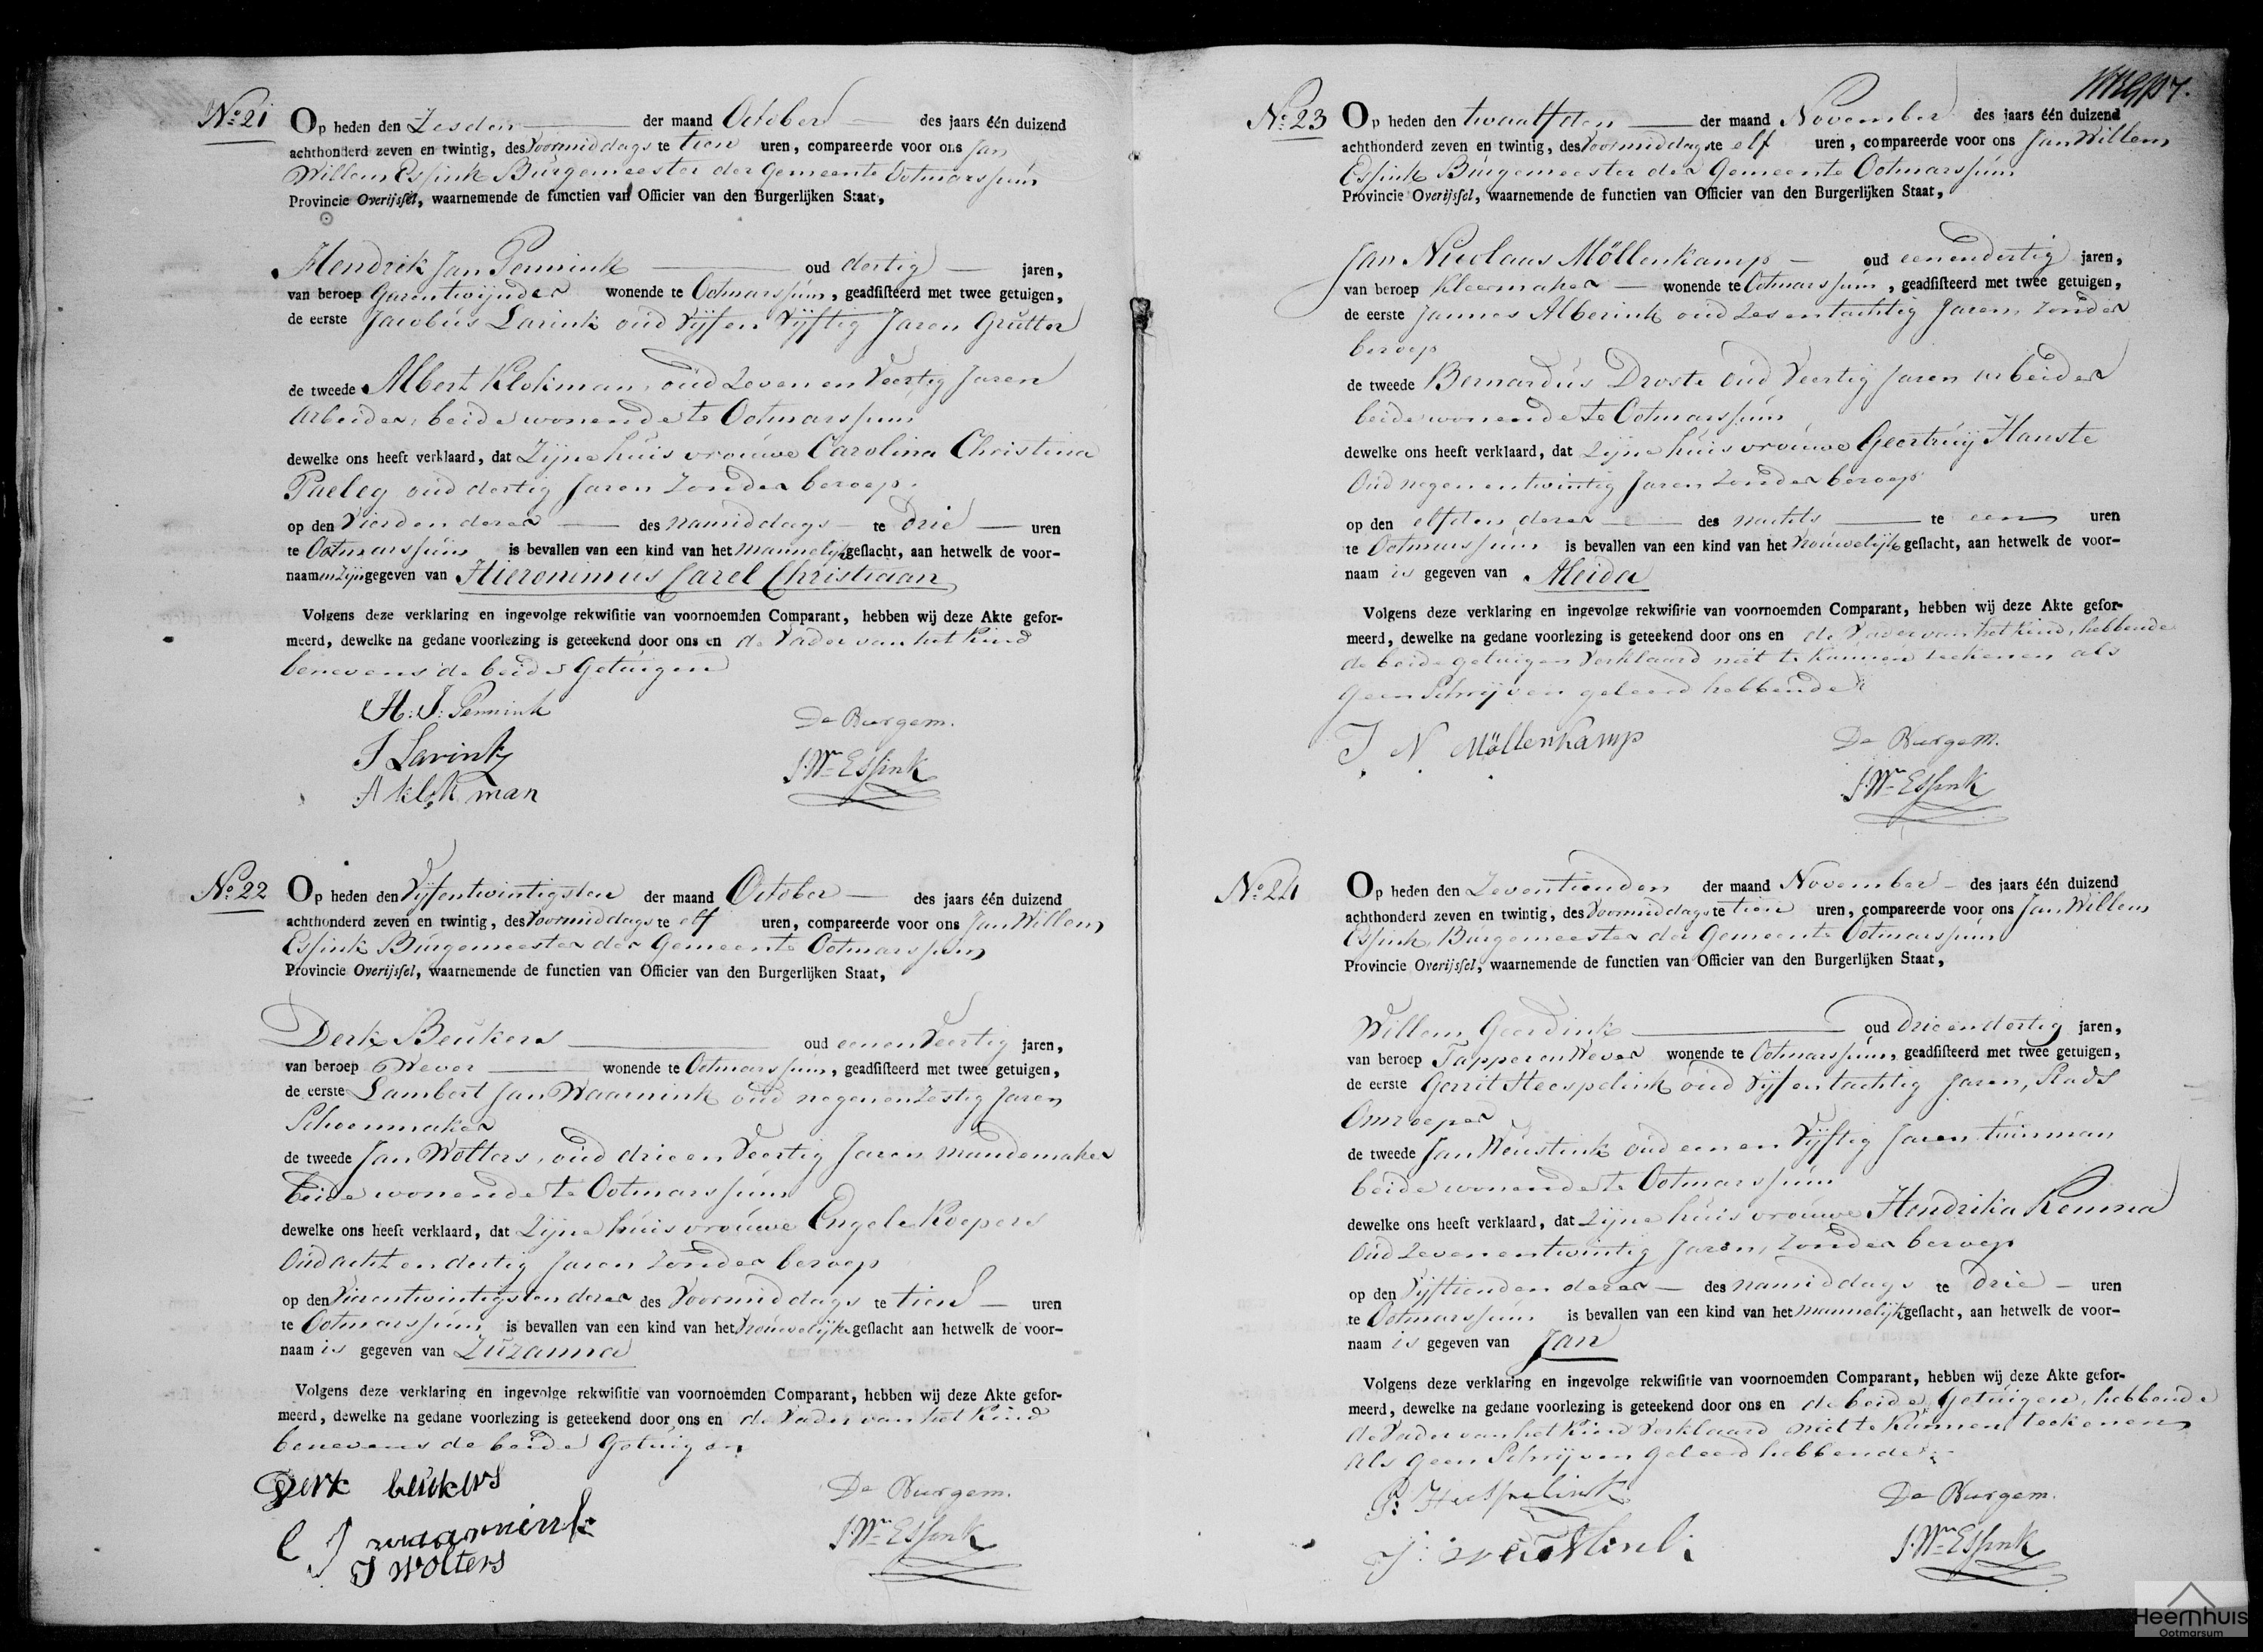 No 21 Op heden den Zesden der maand October des jaars één duizend
achthonderd zeven en twintig, des Voormiddags te tien uren, compareerde voor ons Jan
Willem Essink Burgemeester der Gemeente Ootmarssum
Provincie Overijssel, waarnemende de functien van Officier van den Burgerlijken Staat,
Hendrik Jan Pennink oud dertig jaren,
van beroep Garentwijnder wonende te Ootmarssum, geadsisteerd met twee getuigen,
de eerste Jacobus Larink oud Vijf en Vijftig Jaren Grutter
de tweede Albert Klokman, oud Zeven en Veertig Jaren
Arbeider, beide wonende te Ootmarssum
dewelke ons heeft verklaard, dat Zijne huisvrouwe Carolina Christina
Paeleg oud dertig Jaren Zonder beroep.
op den Vierden dezer des namiddags te drie uren
te Ootmarssum is bevallen van een kind van het mannelijk geslacht, aan hetwelk de voor-
naamen zijn gegeven van Hieronimus Carel Christiaan
Volgens deze verklaring en ingevolge rekwisitie van voornoemden Comparant, hebben wij deze Akte gefor-
meerd, dewelke na gedane voorlezing is geteekend door ons en de Vader van het Kind
benevens de beide Getuigen
H: J: Pennink
De Burgem.
J Larink
J. Wm Essink
A klokman
No 22 Op heden den Vijfentwintigsten der maand October des jaars één duizend
achthonderd zeven en twintig, des Voormiddags te elf uren, compareerde voor ons Jan Willem
Essink Burgemeester der Gemeente Ootmarssum
Provincie Overijssel, waarnemende de functien van Officier van den Burgerlijken Staat,
Derk Beukers oud eenen Veertig jaren,
van beroep Wever wonende te Ootmarssum, geadsisteerd met twee getuigen,
de eerste Lambert Jan Waarnink oud negenenzestig Jaren
Schoenmaker
de tweede Jan Wolters, oud drie en Veertig Jaren mandemaker
beide wonende te Ootmarssum
dewelke ons heeft verklaard, dat Zijne huisvrouwe Engele Koepers
Oud acht en dertig Jaren Zonder beroep
op den Vierentwintigsten dezer des Voormiddags te tien uren
te Ootmarssum is bevallen van een kind van het Vrouwelijk geslacht aan hetwelk de voor-
naam is gegeven van Zuzanna
Volgens deze verklaring en ingevolge rekwisitie van voornoemden Comparant, hebben wij deze Akte gefor-
meerd, dewelke na gedane voorlezing is geteekend door ons en de Vader van het Kind
benevens de beide Getuigen
Derk beukers
De Burgem.
L J waarnink
J. Wm Essink
J Wolters
No 23 Op heden den twaalfden der maand November des jaars één duizend
achthonderd zeven en twintig, des Voormiddags te elf uren, compareerde voor ons Jan Willem
Essink Burgemeester der Gemeente Ootmarssum
Provincie Overijssel, waarnemende de functien van Officier van den Burgerlijken Staat,
Jan Nicolaas Möllenkamp oud eenendertig jaren,
van beroep Kleermaker wonende te Ootmarssum, geadsisteerd met twee getuigen,
de eerste Jannes Alberink oud Zes entachtig Jaren, Zonder
beroep
de tweede Bernardus Droste Oud Veertig Jaren arbeider
beide wonende te Ootmarssum
dewelke ons heeft verklaard, dat Zijne huisvrouwe Geertruij Hanste
Oud negenentwintig Jaren Zonder beroep
op den elfden dezer des nachts te een uren
te Ootmarssum is bevallen van een kind van het Vrouwelijk geslacht, aan hetwelk de voor-
naam is gegeven van Aleida
Volgens deze verklaring en ingevolge rekwisitie van voornoemden Comparant, hebben wij deze Akte gefor-
meerd, dewelke na gedane voorlezing is geteekend door ons en de Vader van het Kind, hebbende
de beide getuigen Verklaard niet te Kunnen teekenen als
Geen Schrijven geleerd hebbende
J. N. Möllenkamp
De Burgem.
J. Wm Essink
No 24 Op heden den Zeventienden der maand November des jaars één duizend
achthonderd zeven en twintig, des Voormiddags te tien uren, compareerde voor ons Jan Willem
Essink Burgemeester der Gemeente Ootmarssum
Provincie Overijssel, waarnemende de functien van Officier van den Burgerlijken Staat,
Willem Geerdink oud drie en dertig jaren,
van beroep Tapper en Wever wonende te Ootmarssum, geadsisteerd met twee getuigen,
de eerste Gerrit Heespelink oud Vijf entachtig Jaren, Stads
Omroeper
de tweede Jan Weustink oud een en Vijftig Jaren tuinman
beide wonende te Ootmarssum
dewelke ons heeft verklaard, dat Zijne huisvrouwe Hendrika Kemna
Oud Zevenentwintig Jaren, Zonder beroep
op den Vijftienden dezer des namiddags te drie uren
te Ootmarssum is bevallen van een kind van het mannelijk geslacht, aan hetwelk de voor-
naam is gegeven van Jan
Volgens deze verklaring en ingevolge rekwisitie van voornoemden Comparant, hebben wij deze Akte gefor-
meerd, dewelke na gedane voorlezing is geteekend door ons en de beide Getuigen, hebbende
de Vader van het Kind Verklaard niet te Kunnen teekenen
Als Geen Schrijven Geleerd hebbende
G: Heespelink
De Burgem.
J: weustink
J. Wm Essink
Heemhuis
Ootmarsum